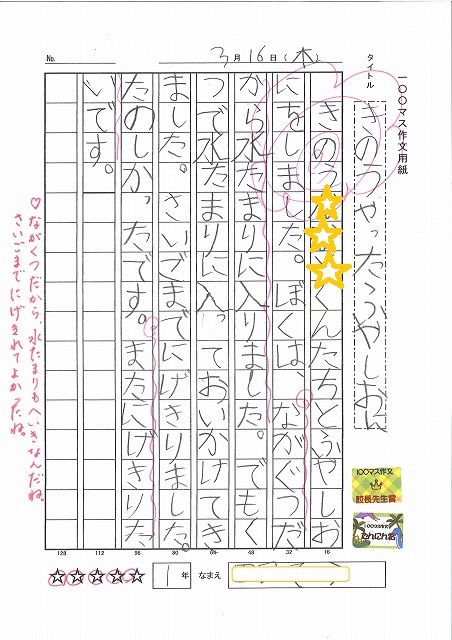 一〇〇マス作文用紙
タイトル
きのうやったふやしおに
No.
3月16日(木)
きのう くんたちとふやしお
にをしました。ぼくは、ながぐつだ
から水たまりに入りました。でもく
つで水たまりに入っておいかけてき
ました。さいごまでにげきりました。
たのしかったです。またにげきりた
いです。
♡ながぐつだから、水たまりもへいきなんだね。
さいごまでにげきれてよかったね。
100マス作文
校長先生賞
128 112 96 80 64 48 32 16
☆☆☆☆☆
1年
なまえ